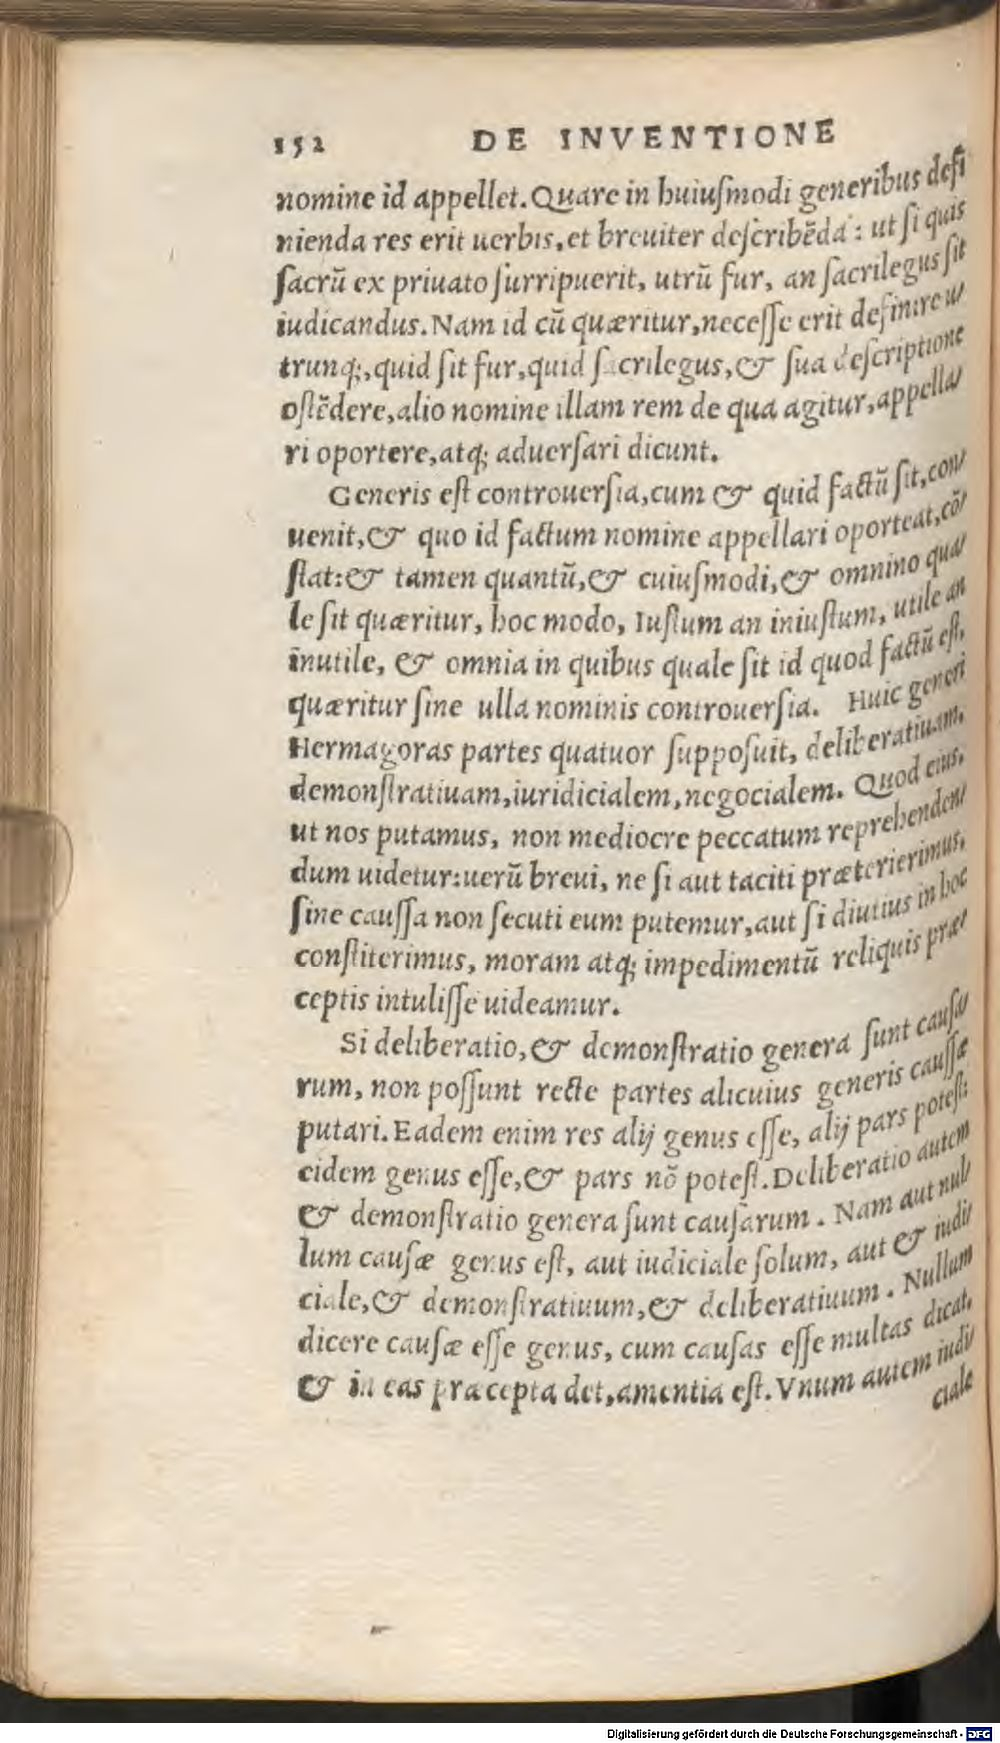 152 DE INVENTIONE
nomine id appellet. Quare in huiuſmodi generibus defi
nienda res erit uerbis, et breuiter deſcribēda: ut ſi quis
ſacrū ex priuato ſurripuerit, utrū fur, an ſacrilegus ſit
iudicandus. Nam id cū quæritur, neceſſe erit definire u/
trunq;, quid ſit fur, quid ſacrilegus, & ſua deſcriptione
oſtēdere, alio nomine illam rem de qua agitur, appella/
ri oportere, atq; aduerſari dicunt.
Generis eſt controuerſia, cum & quid factū ſit, con/
uenit, & quo id factum nomine appellari oporteat, cō/
ſtat: & tamen quantū, & cuiuſmodi, & omnino qua/
le ſit quæritur, hoc modo, Iuſtum an iniuſtum, utile an
inutile, & omnia in quibus quale ſit id quod factū eſt,
quæritur ſine ulla nominis controuerſia. Huic generi
Hermagoras partes quatuor ſuppoſuit, deliberatiuam,
demonſtratiuam, iuridicialem, negocialem. Quod eius,
ut nos putamus, non mediocre peccatum reprehenden/
dum uidetur: uerū breui, ne ſi aut taciti præterierimus,
ſine cauſſa non ſecuti eum putemur, aut ſi diutius in hoc
conſtiterimus, moram atq; impedimentū reliquis præ/
ceptis intuliſſe uideamur.
Si deliberatio, & demonſtratio genera ſunt cauſa/
rum, non poſſunt recte partes alicuius generis cauſſæ
putari. Eadem enim res alij genus eſſe, alij pars poteſt:
eidem genus eſſe, & pars nō poteſt. Deliberatio autem
& demonſtratio genera ſunt cauſarum. Nam aut nul/
lum cauſæ genus eſt, aut iudiciale ſolum, aut & iudi/
ciale, & demonſtratiuum, & deliberatiuum. Nullum
dicere cauſæ eſſe genus, cum cauſas eſſe multas dicat,
& in eas præcepta det, amentia eſt. Vnum autem iudi/
ciale
Digitalisierung gefördert durch die Deutsche Forschungsgemeinschaft - DFG